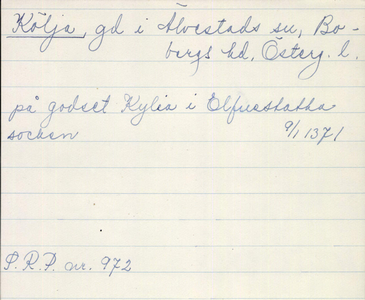 Kölja, gd i Älvestads sn, Bo-
bergs hd, Österg. l.
på godset Kylia i Elfuestatha
socken 9/1 1371
S.R.P. nr. 972